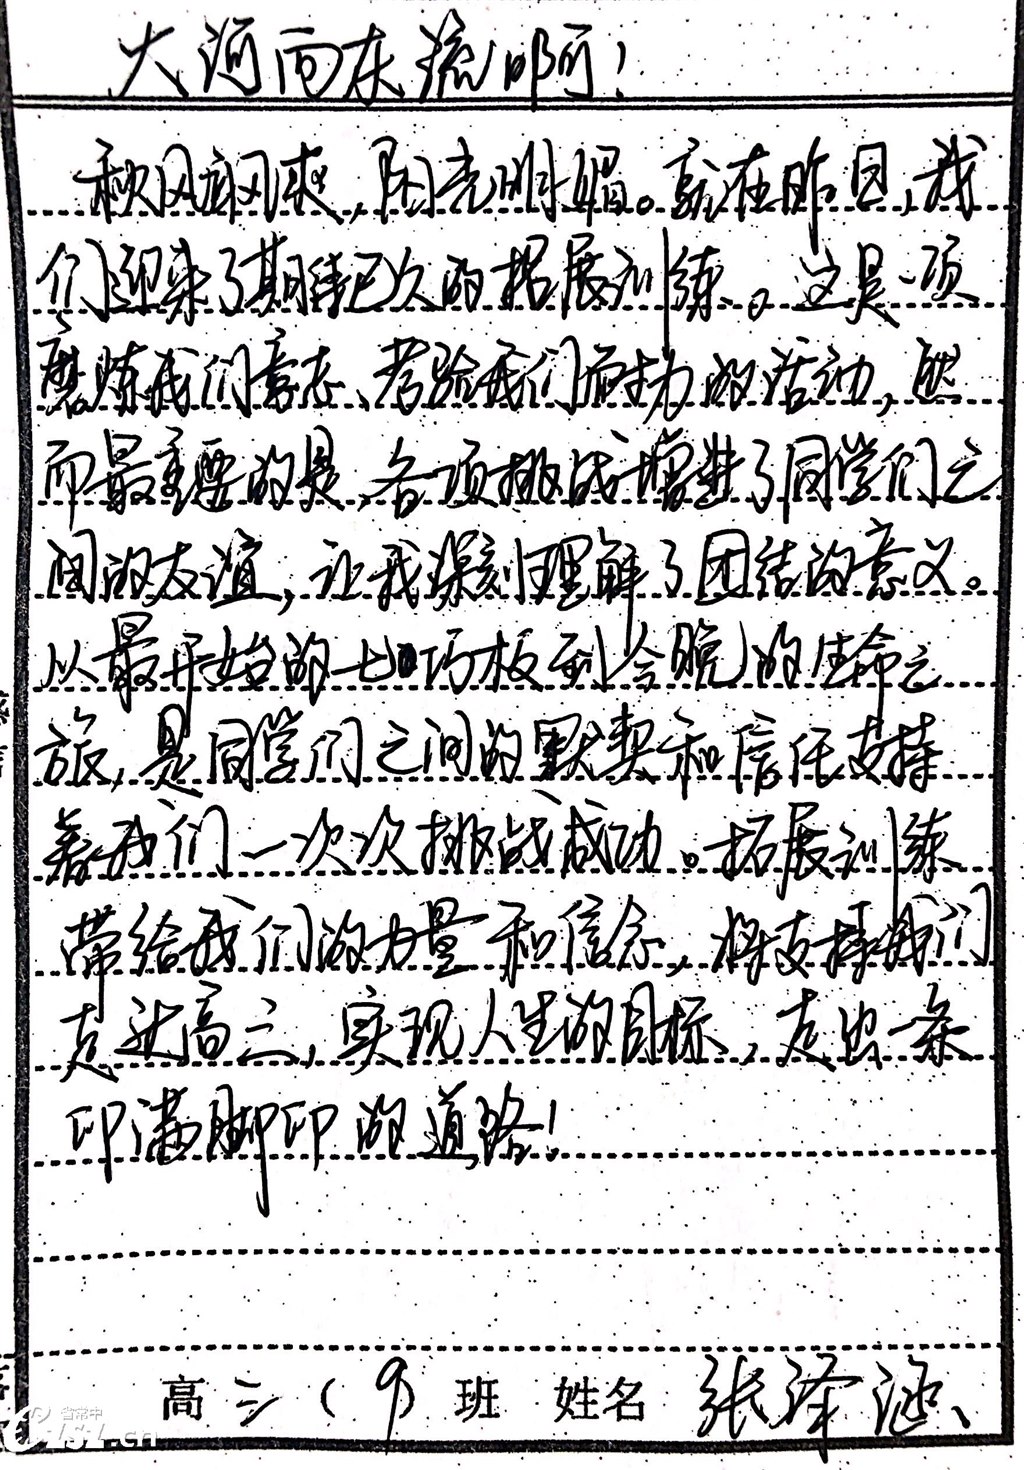 大河向东流啊！
秋风飒爽，阳光明媚。就在昨日，我
们迎来了期待已久的拓展训练。这是一项
磨炼我们意志、考验我们耐力的活动，然
而最重要的是，各项挑战增进了同学们之
间的友谊，让我深刻理解了团结的意义。
从最开始的七巧板到今晚的生命之
旅，是同学们之间的默契和信任支持
着我们一次次挑战成功。拓展训练
带给我们的力量和信念，将支撑我们
走进高三，实现人生的目标，走出一条
印满脚印的道路！
高三（9）班 姓名 张泽涵
省常中